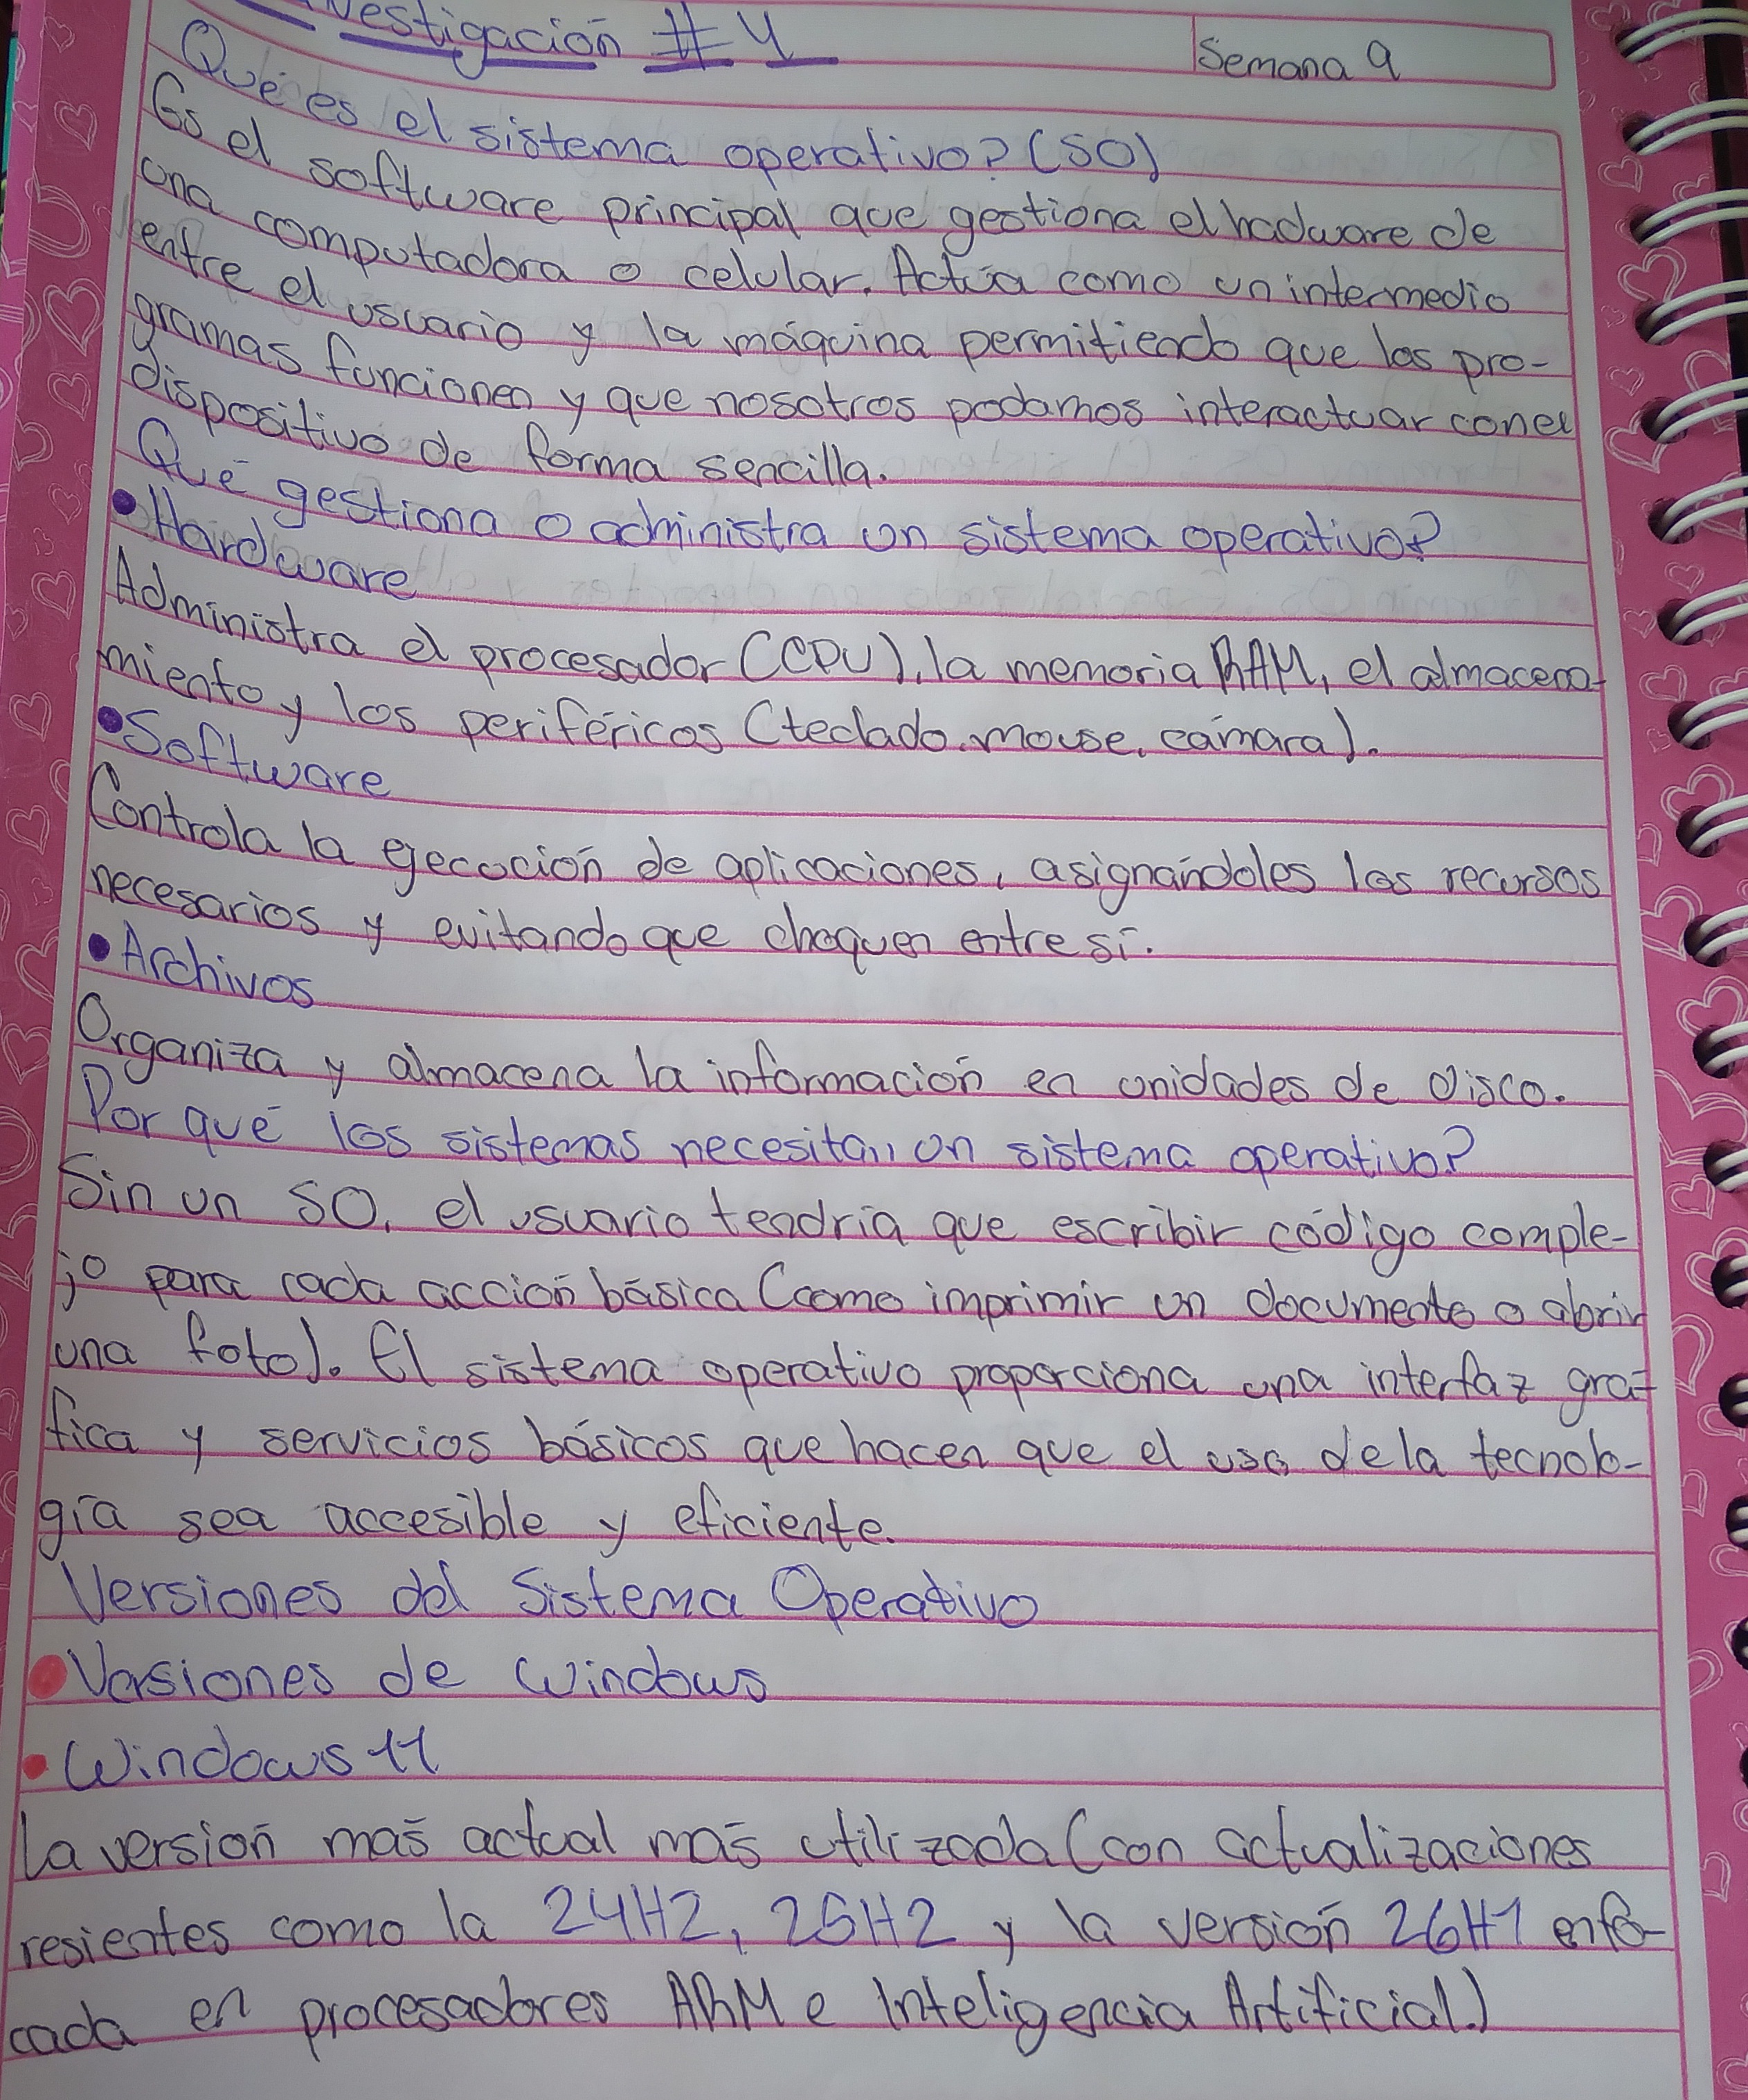 Investigación #4
Semana 9
Qué es el sistema operativo? (SO)
Es el software principal que gestiona el hadware de
una computadora o celular. Actúa como un intermedio
entre el usuario y la máquina permitiendo que los pro-
gramas funcionen y que nosotros podamos interactuar con el
dispositivo de forma sencilla.
Qué gestiona o administra un sistema operativo?
• Hardware
Administra el procesador (CPU), la memoria RAM, el almacena-
miento y los periféricos (teclado, mouse, cámara).
• Software
Controla la ejecución de aplicaciones, asignándoles los recursos
necesarios y evitando que choquen entre sí.
• Archivos
Organiza y almacena la información en unidades de disco.
Por qué los sistemas necesitan un sistema operativo?
Sin un SO, el usuario tendría que escribir código comple-
jo para cada acción básica (como imprimir un documento o abrir
una foto). El sistema operativo proporciona una interfaz grá-
fica y servicios básicos que hacen que el uso de la tecnolo-
gía sea accesible y eficiente.
Versiones del Sistema Operativo
• Versiones de Windows
• Windows 11
La versión más actual más utilizada (con actualizaciones
resientes como la 24H2, 25H2 y la versión 26H1 enfo-
cada en procesadores ARM e Inteligencia Artificial.)